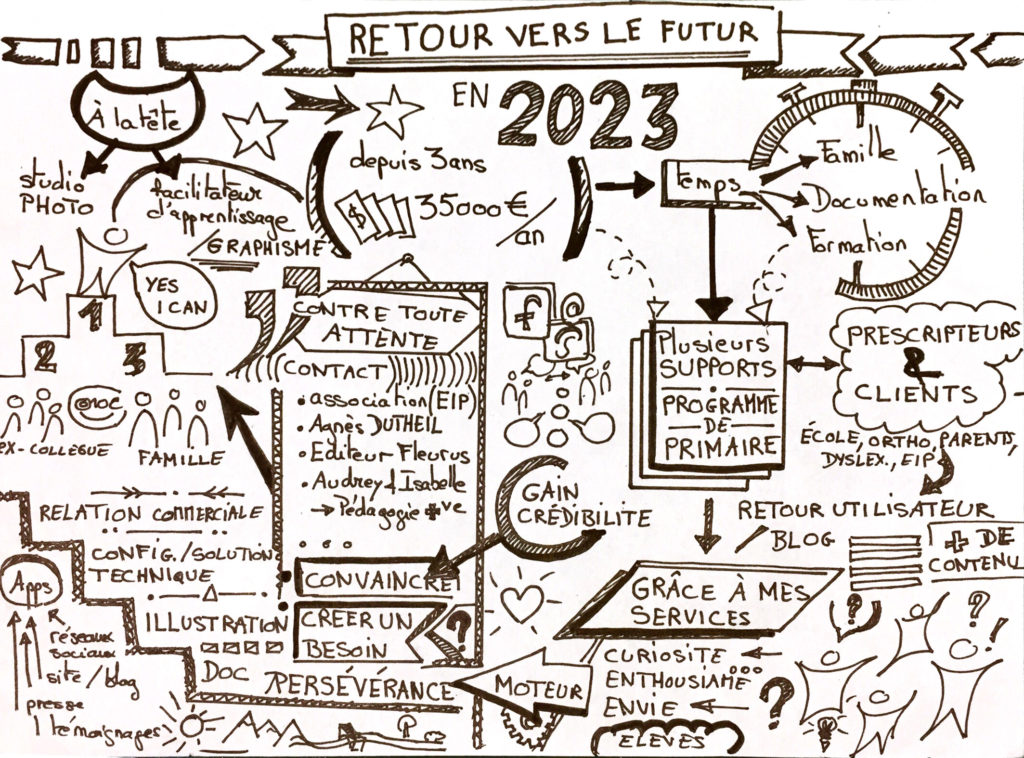 RETOUR VERS LE FUTUR
EN 2023
À la tête
studio
PHOTO
facilitateur
d'apprentissage
/GRAPHISME
depuis 3 ans
$
35000 €
/an
temps
Famille
Documentation
Formation
YES
I CAN
1
2
3
ex-COLLÈGUE
FAMILLE
CONTRE TOUTE
ATTENTE
CONTACT
• association (EIP)
• Agnès DUTHEIL
• Editeur Fleurus
• Audrey & Isabelle
→ Pédagogie +ve
• • •
CONVAINCRE
CRÉER UN
BESOIN
?
f
GAIN
CRÉDIBILITE
Plusieurs
SUPPORTS
PROGRAMME
DE
PRIMAIRE
PRESCRIPTEURS
&
CLIENTS
ÉCOLE, ORTHO, PARENTS,
DYSLEX., EIP
RETOUR UTILISATEUR
BLOG
+ DE
CONTENU
RELATION COMMERCIALE
CONFIG./SOLUTION
TECHNIQUE
ILLUSTRATION
DOC
PERSÉVÉRANCE
MOTEUR
Apps
réseaux
sociaux
site/blog
presse
témoignages
GRÂCE À MES
SERVICES
CURIOSITE
ENTHOUSIAME...
ENVIE
ELEVES
?
?
?
!